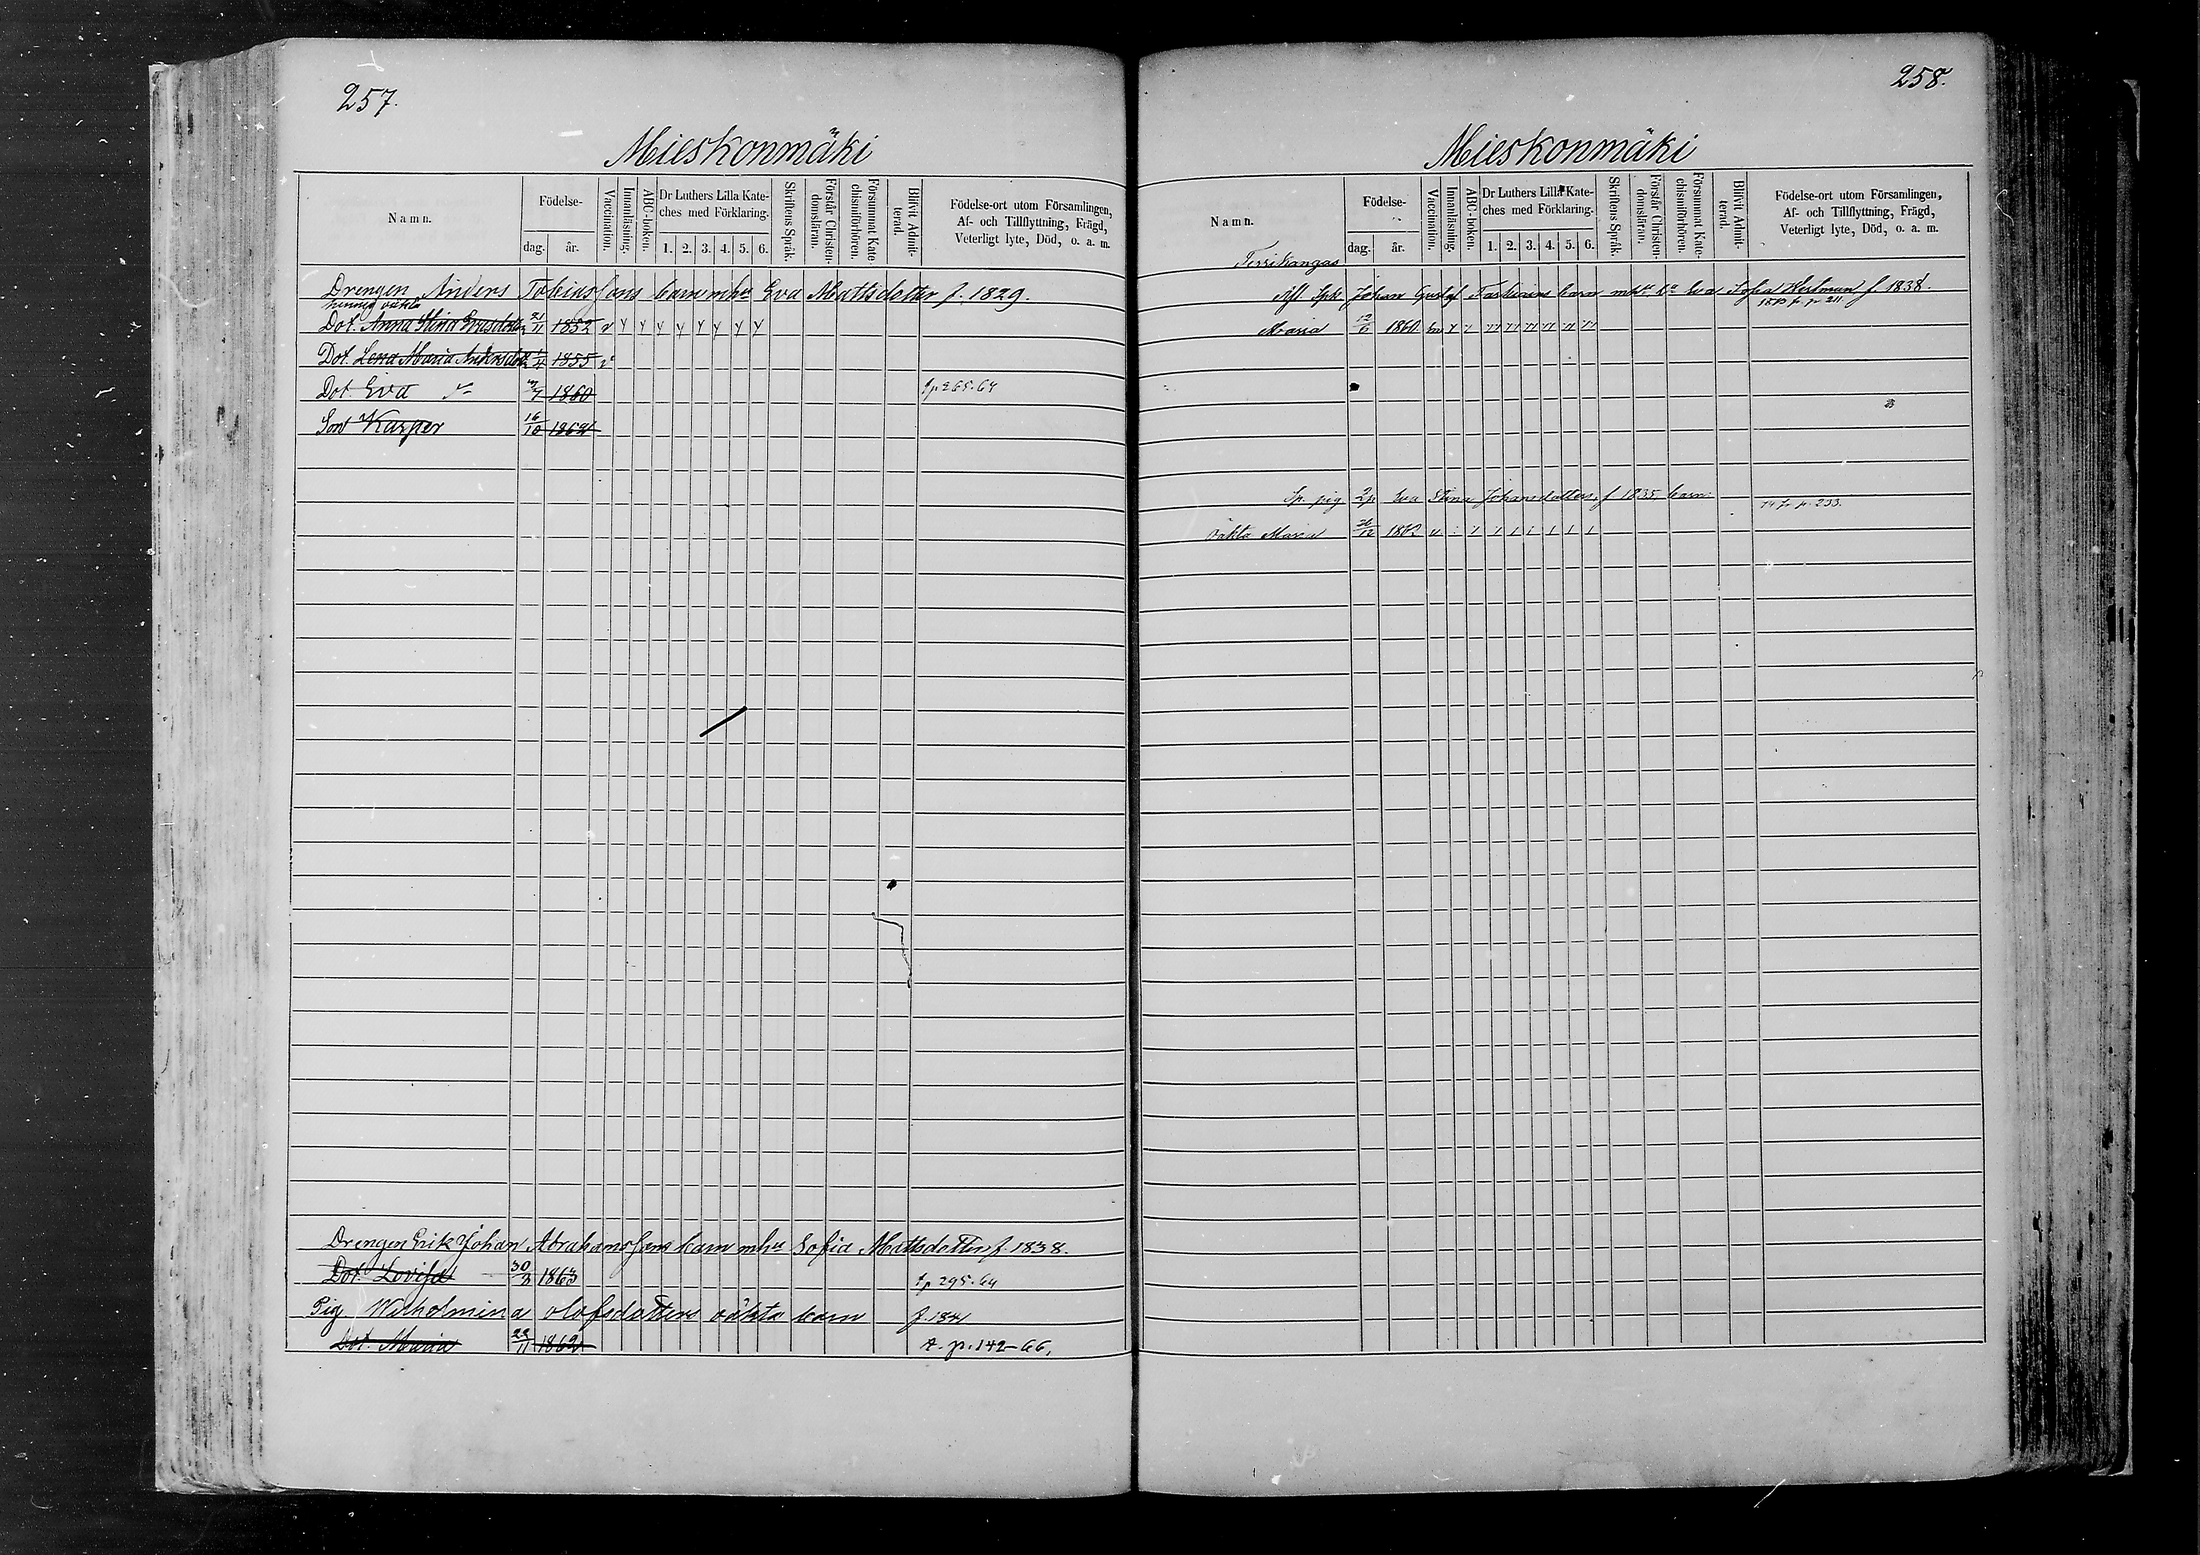 257.
Mieskonmäki
Namn.
Födelse-
dag.
år.
Vaccination.
Innanläsning.
ABC-boken.
Dr Luthers Lilla Kate-
ches med Förklaring.
1. 2. 3. 4. 5. 6.
Skriftens Språk.
Förstår Christen-
domsläran.
Försummat Kate-
chismiförhören.
Blifvit Admit-
terad.
Födelse-ort utom Församlingen,
Af- och Tillflyttning, Frägd,
Veterligt lyte, Död, o. a. m.
Drengen Anders Tobiassons barn mhu Eva Mattsdotter f. 1829.
hennes oäkta
Dot. Anna Stina 21/11 1852 v
Dot. Lena Maria Andersdotter 1855 v
Dot. Eva 1860 tp 265.64
Son Kasper 16/10 1862
Drengen Erik Johan Abrahamssons barn mhu Sofia Mattsdotter f. 1838.
Dot. Lovisa 30/3 1863 tp 295.64
Pig. Wilhelmina Olofsdotters oäkta barn f. 1841
Dot. Maria 22/11 1862 t. p. 142-66,
258.
Mieskonmäki
Namn.
Födelse-
dag.
år.
Vaccination.
Innanläsning.
ABC-boken.
Dr Luthers Lilla Kate-
ches med Förklaring.
1. 2. 3. 4. 5. 6.
Skriftens Språk.
Förstår Christen-
domsläran.
Försummat Kate-
chismiförhören.
Blifvit Admit-
terad.
Födelse-ort utom Församlingen,
Af- och Tillflyttning, Frägd,
Veterligt lyte, Död, o. a. m.
Johan Gustaf barn Eva Sofia f. 1838.
Maria 12/6 1860
Sp. pig Eva Stina Johansdotters f 1835, barn: 74 t. p. 233.
oäkta Maria